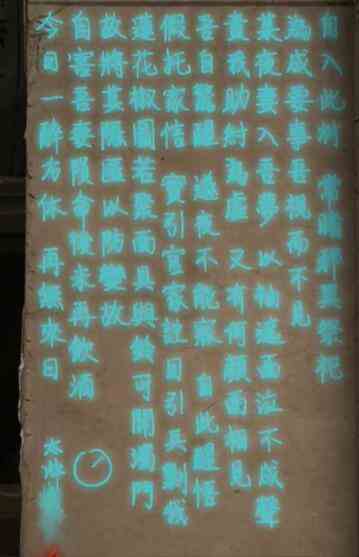 自入此村 常睹鄰里祭祀
為成要事吾視而不見
某夜妻入吾夢 以袖遮面泣不成聲
責我助紂為虐 又有何顏面相見
吾自驚醒 遂夜不能寐 自此醒悟
假托家信 實引官家註目引兵剿俄
蓮花椒圖若聚面具與鈴可開濁門
故將其隱匿以防變故
自害吾妻隕命後未再飲酒
今日一醉方休 再無來日